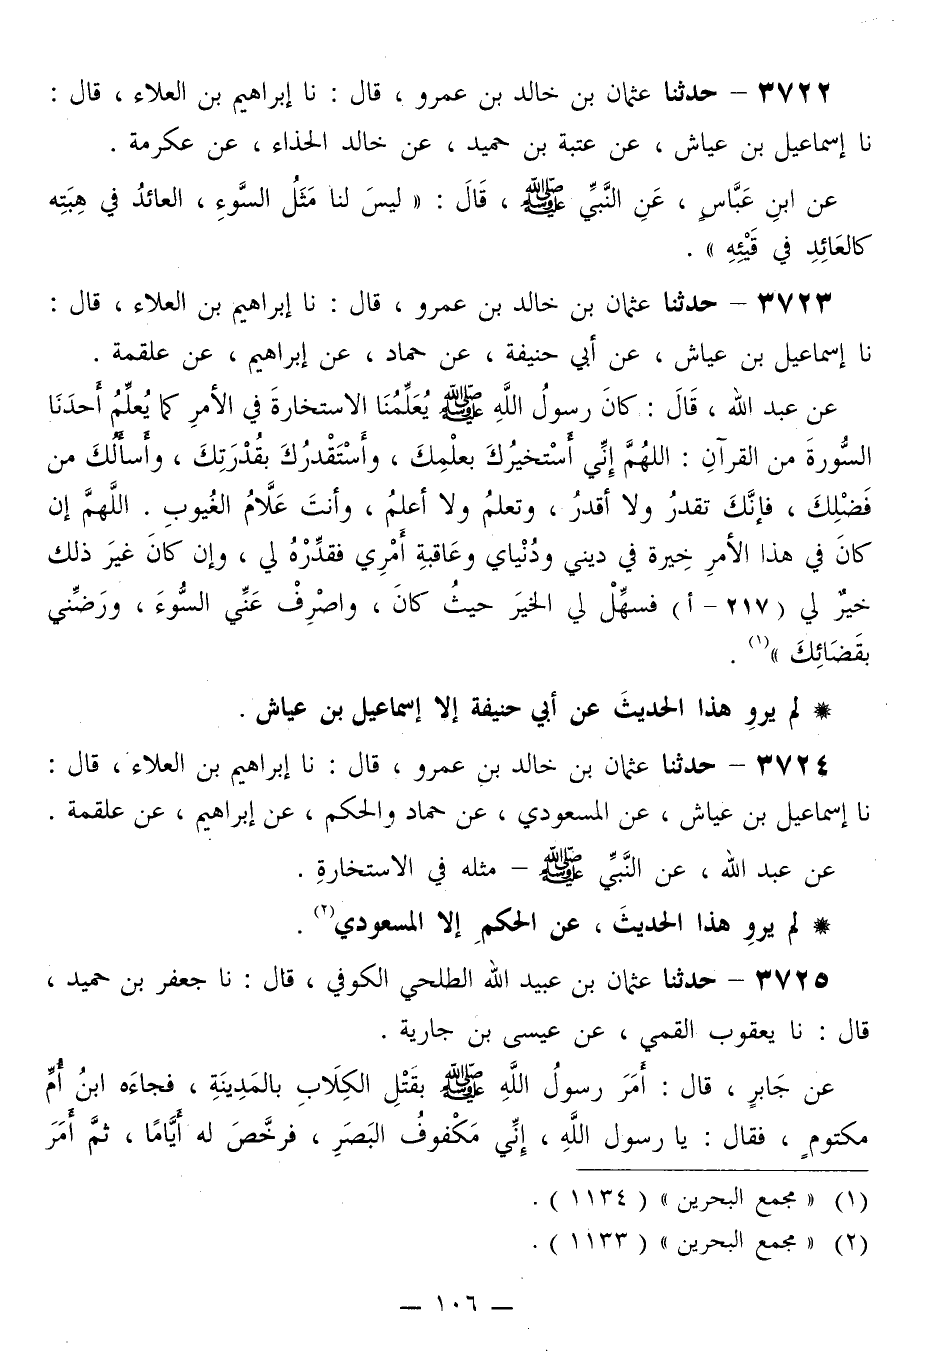 ٣٧٢٢ – حدثنا عثمان بن خالد بن عمرو ، قال : نا إبراهيم بن العلاء ، قال :
نا إسماعيل بن عياش ، عن عتبة بن حميد ، عن خالد الحذاء ، عن عكرمة .
عن ابنِ عَبَّاسٍ ، عَنِ النَّبيِّ ﷺ ، قَالَ : « ليسَ لنا مَثَلُ السَّوءِ ، العائدُ في هِبَتِه
كالعَائِدِ في قَيْئِهِ » .
٣٧٢٣ – حدثنا عثمان بن خالد بن عمرو ، قال : نا إبراهيم بن العلاء ، قال :
نا إسماعيل بن عياش ، عن أبي حنيفة ، عن حماد ، عن إبراهيم ، عن علقمة .
عن عبد الله ، قَالَ : كانَ رسولُ اللَّهِ ﷺ يُعَلِّمُنَا الاستخارةَ في الأمرِ كما يُعلِّمُ أَحدَنَا
السُّورةَ من القرآنِ : اللهُمَّ إنِّي أَسْتخيرُكَ بعلْمِكَ ، وأَسْتَقْدرُكَ بقُدْرَتِكَ ، وأَسأَلُكَ من
فَضْلِكَ ، فإنَّكَ تقدرُ ولا أقدرُ ، وتعلمُ ولا أعلمُ ، وأنتَ عَلَّامُ الغُيوبِ . اللَّهمَّ إن
كانَ في هذا الأمرِ خِيرة في ديني ودُنْياي وعَاقبةِ أَمْرِي فقدِّرْهُ لي ، وإن كانَ غيرَ ذلك
خيرٌ لي ( ٢١٧ – أ ) فسهِّلْ لي الخيرَ حيثُ كانَ ، واصْرِفْ عَنِّي السُّوءَ ، ورَضِّني
بقَضَائِكَ »(١) .
* لم يروِ هذا الحديثَ عن أبي حنيفة إلا إسماعيل بن عياش .
٣٧٢٤ – حدثنا عثمان بن خالد بن عمرو ، قال : نا إبراهيم بن العلاء ، قال :
نا إسماعيل بن عياش ، عن المسعودي ، عن حماد والحكم ، عن إبراهيم ، عن علقمة .
عن عبد الله ، عن النَّبيِّ ﷺ – مثله في الاستخارةِ .
* لم يروِ هذا الحديثَ ، عن الحكمِ إلا المسعودي(٢) .
٣٧٢٥ – حدثنا عثمان بن عبيد الله الطلحي الكوفي ، قال : نا جعفر بن حميد ،
قال : نا يعقوب القمي ، عن عيسى بن جارية .
عن جَابرٍ ، قال : أَمَرَ رسولُ اللَّهِ ﷺ بقَتْلِ الكِلَابِ بالمَدِينَةِ ، فجاءَه ابنُ أُمِّ
مكتومٍ ، فقال : يا رسول اللَّهِ ، إنِّي مَكْفوفُ البَصَرِ ، فرخَّصَ له أَيَّامًا ، ثمَّ أَمَرَ
(١) « مجمع البحرين » ( ١١٣٤ ) .
(٢) « مجمع البحرين » ( ١١٣٣ ) .
— ١٠٦ —